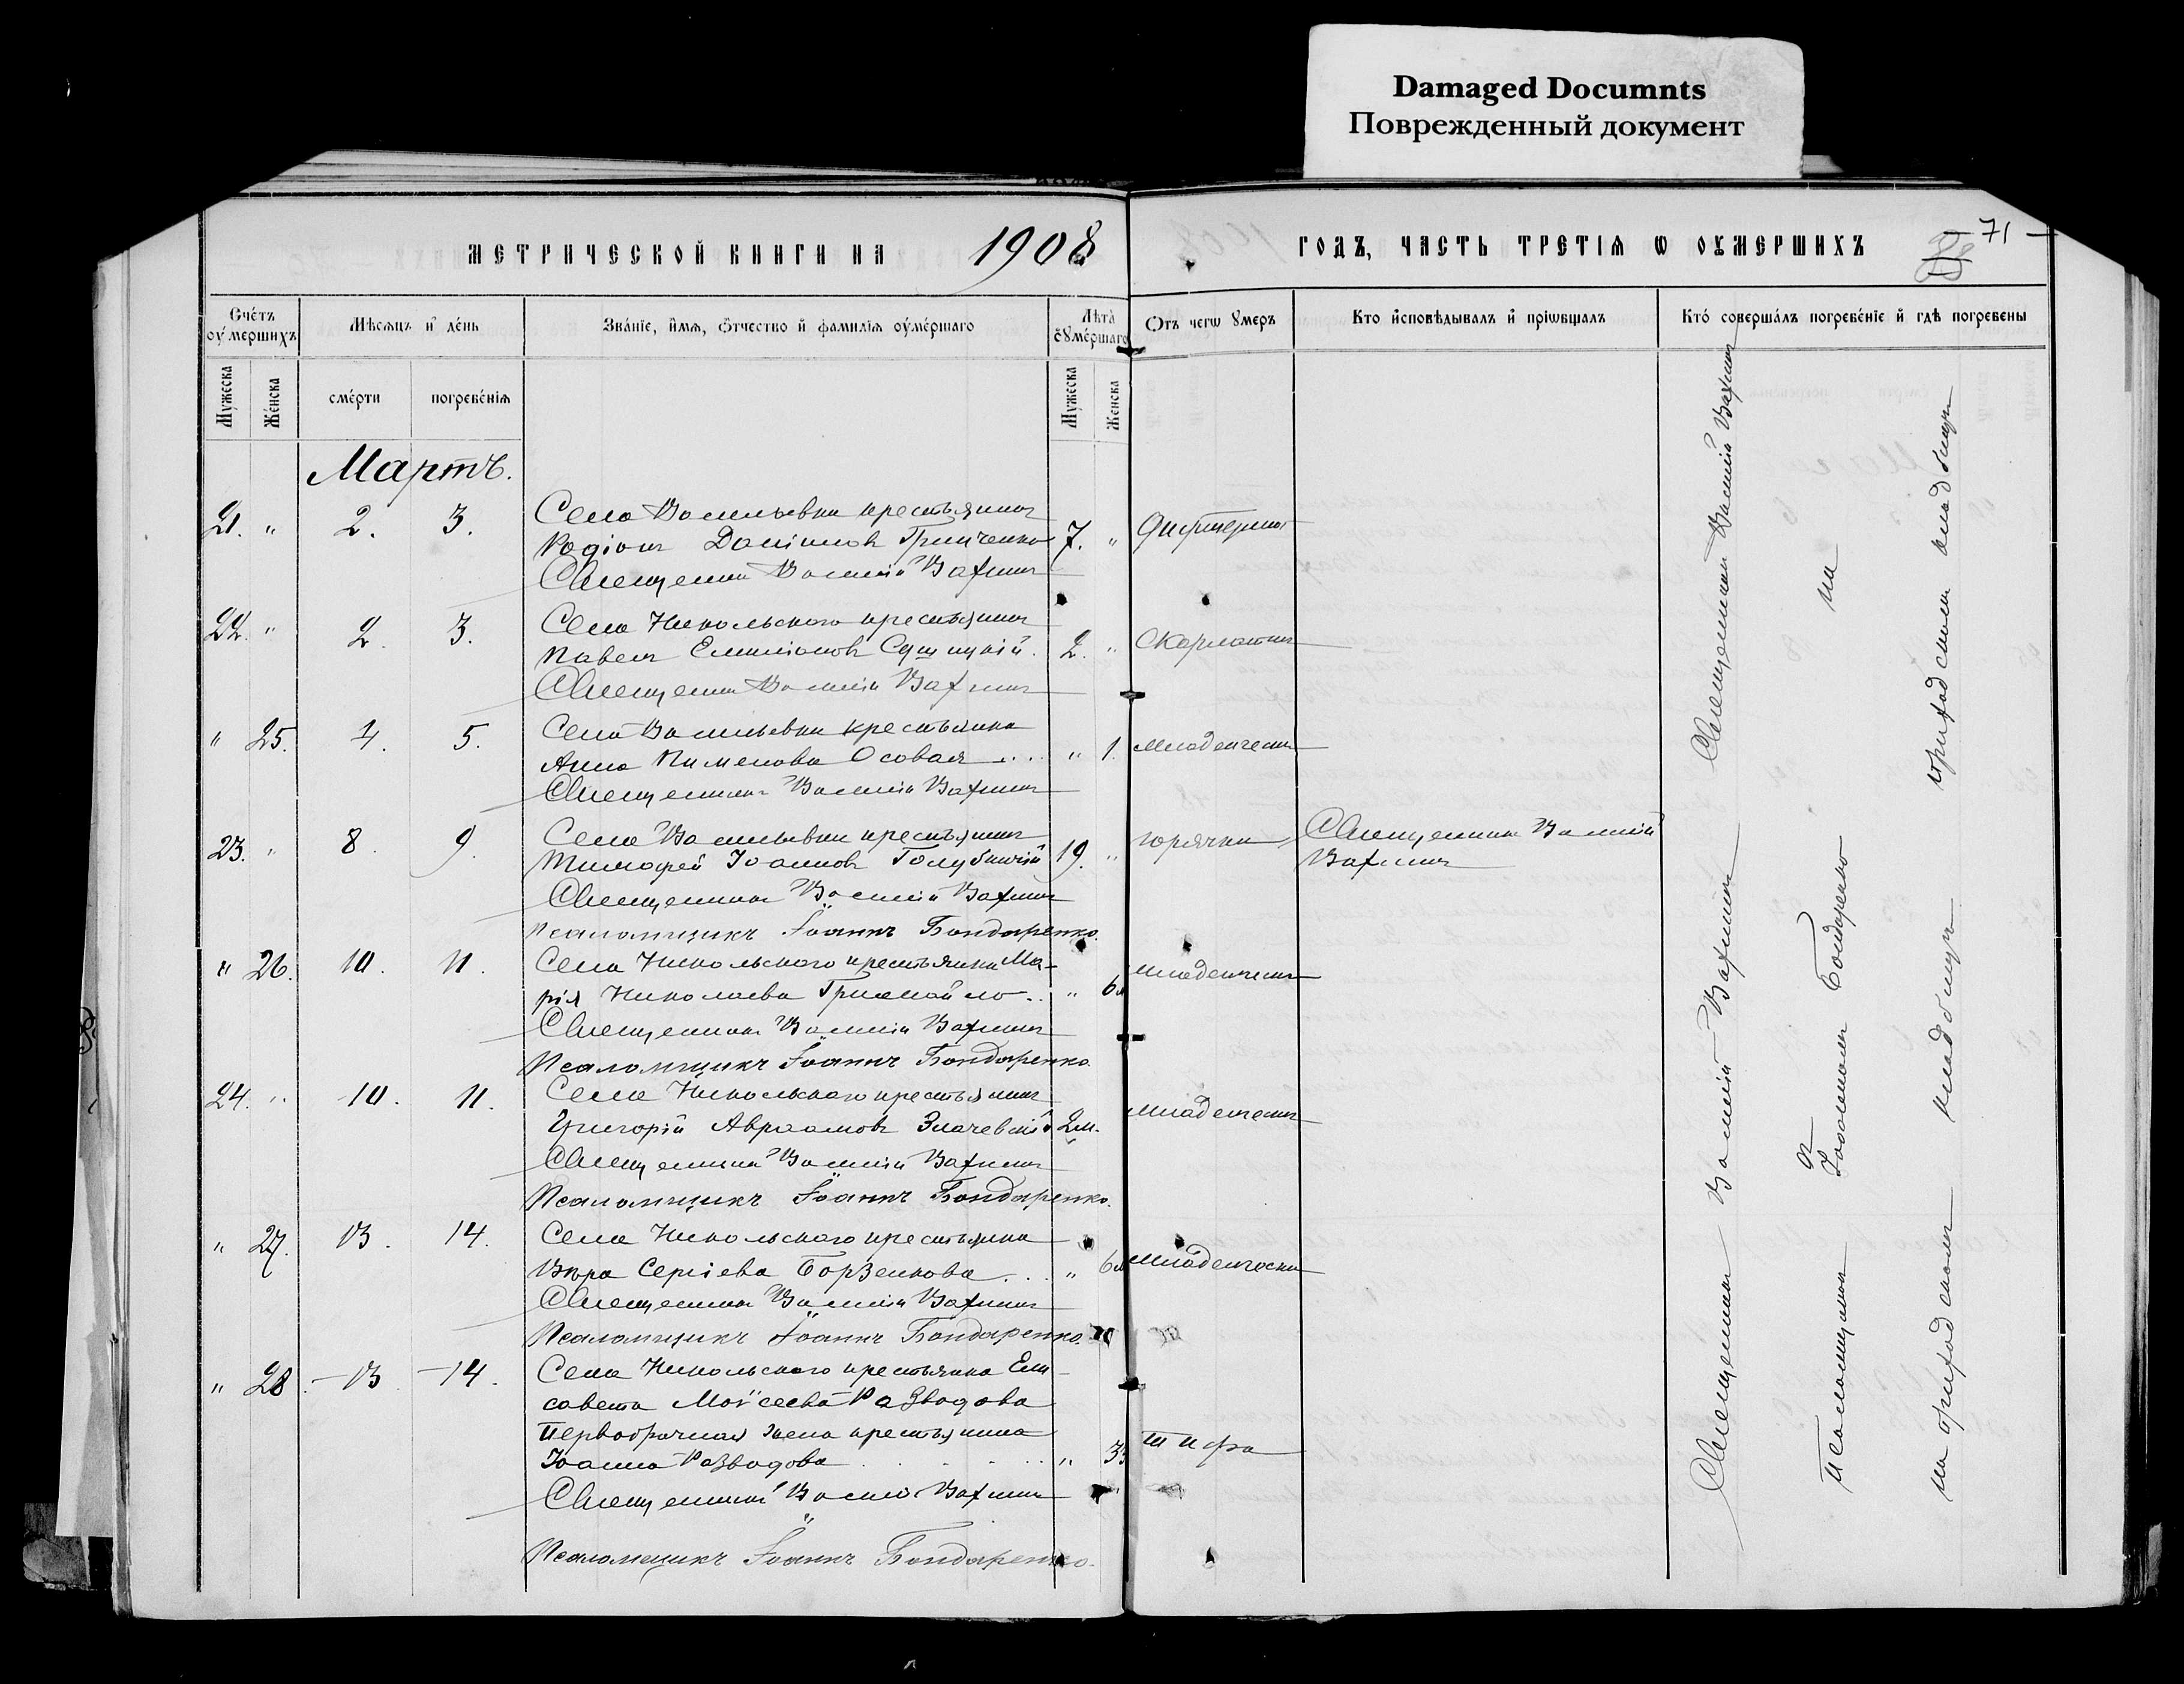 Damaged Documnts
Поврежденный документ
МЕТРИЧЕСКОЙ КНИГИ НА 1908 ГОДЪ, ЧАСТЬ ТРЕТІѦ Ѡ ОУМЕРШИХЪ
71
Счётъ оумершихъ
Мѣсѧцъ и день
Званіе, имѧ, отчество и фамиліѧ оумершаго
Лѣта оумершаго
Отъ чегѡ умеръ
Кто исповѣдывалъ и пріѡбщалъ
Кто совершалъ погребеніе и гдѣ погребены
Мужеска
Женска
смерти
погребеніѧ
Мужеска
Женска
Мартъ.
21. " 2. 3. Села Васильевки крестьянинъ
Родіонъ Даніиловъ Гринченко 7. " Дифтерита
Священникъ Василій Вахнинъ
22. " 2. 3. Села Никольскаго крестьянинъ
Павелъ Емиліановъ 2. " Скарлатина
Священникъ Василій Вахнинъ
" 25. 4. 5. Села Васильевки крестьянка
Анна Пименова Осовая .... " 1. младенческ
Священникъ Василій Вахнинъ
23. " 8. 9. Села Васильевки крестьянинъ
Тимофей Іоанновъ 19. " горячки Священникъ Василій
Вахнинъ
Священникъ Василій Вахнинъ
Псаломщикъ Іоаннъ Бондаренко.
" 26. 10. 11. Села Никольскаго крестьянка Ма-
рія Николаева .. " 6м младенческ
Священникъ Василій Вахнинъ
Псаломщикъ Іоаннъ Бондаренко.
24. " 10. 11. Села Никольскаго крестьянинъ
Григорій Авраамовъ 2м. младенческ
Священникъ Василій Вахнинъ
Псаломщикъ Іоаннъ Бондаренко.
" 27. 13. 14. Села Никольскаго крестьянка
Вѣра Сергіева Борзенкова... " 6м младенческ
Священникъ Василій Вахнинъ
Псаломщикъ Іоаннъ Бондаренко.
" 28. 13. 14. Села Никольскаго крестьянка Ели-
савета Моѵсеева Разводова
первобрачная жена крестьянина
Іоанна Разводова " 33 тифа
Священникъ Василій Вахнинъ
Псаломщикъ Іоаннъ Бондаренко.
Священникъ Василій Вахнинъ Священникъ Василій Вахнинъ
псаломщикомъ Іоанномъ Бондаренко на
на приходскомъ кладбищѣ приходскомъ кладбищѣ